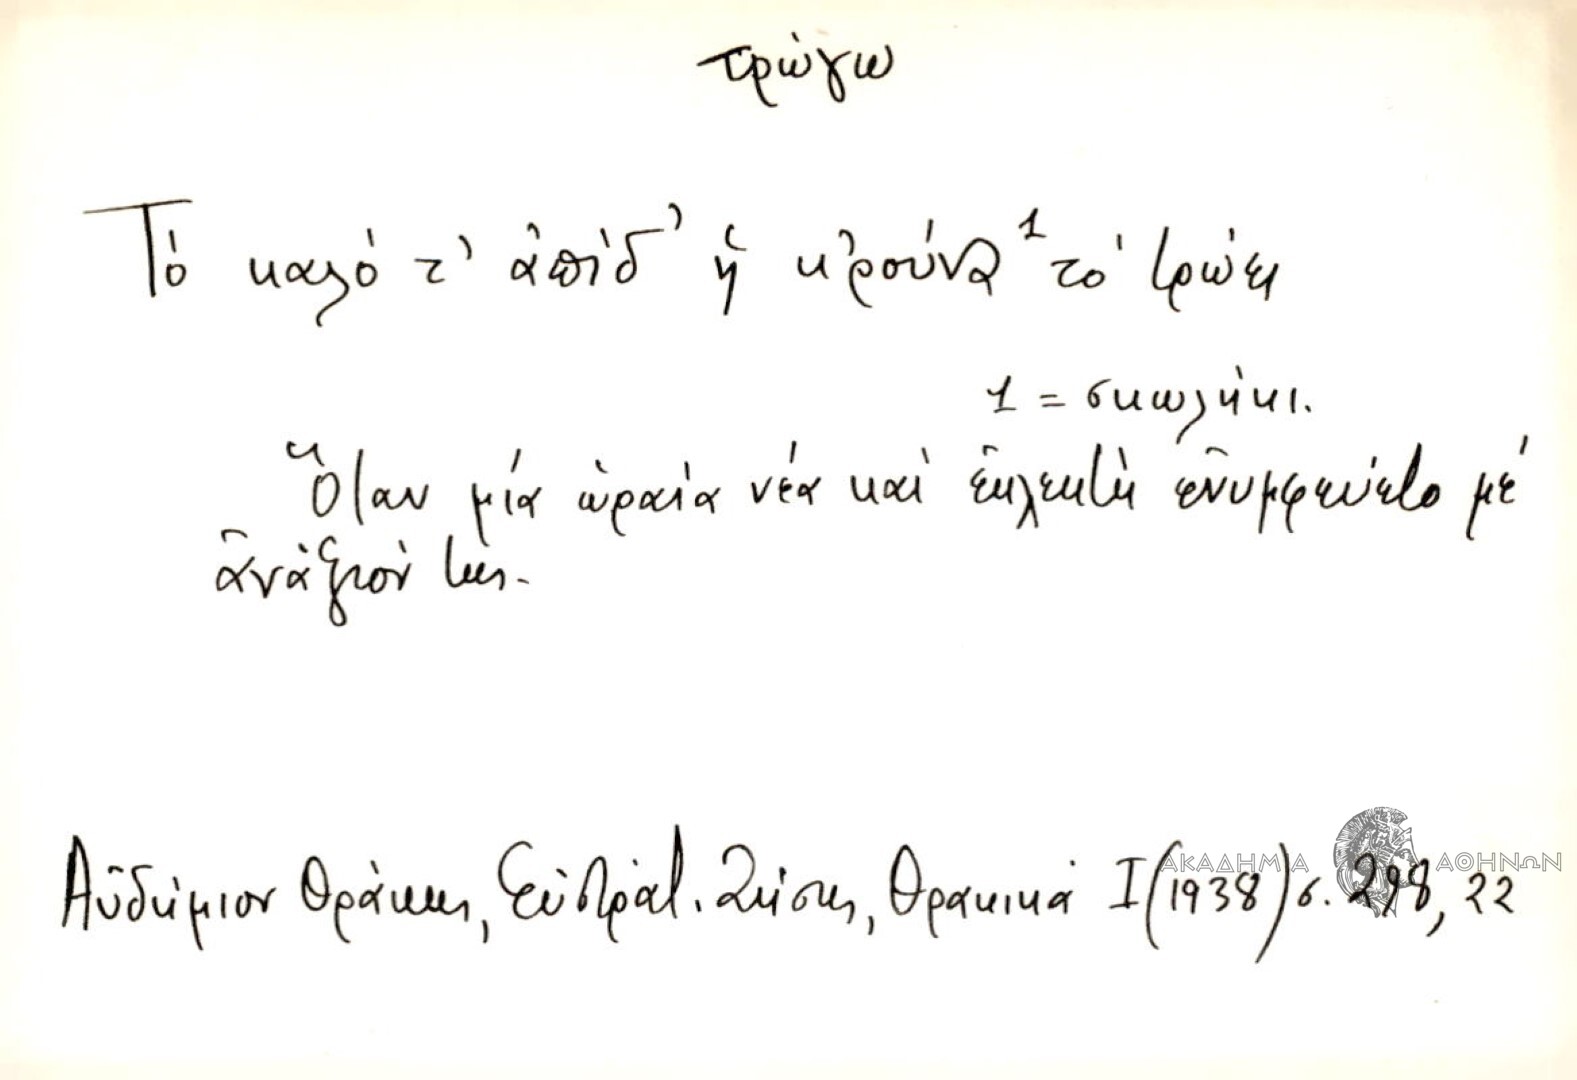 τρώγω
Τό καλό τ' ἀπίδ' ἡ κ'ρούνα¹ τό τρώει
1 = σκωλήκι.
Ὅταν μία ὡραία νέα καί ἐκλεκτή ἐνυμφεύετο μέ
ἀνάξιόν της.
Αὐδήμιον Θράκης, Εὐστρατ. Ζήσης, Θρακικά Ι (1938) σ. 298, 22
ΑΚΑΔΗΜΙΑ ΑΘΗΝΩΝ